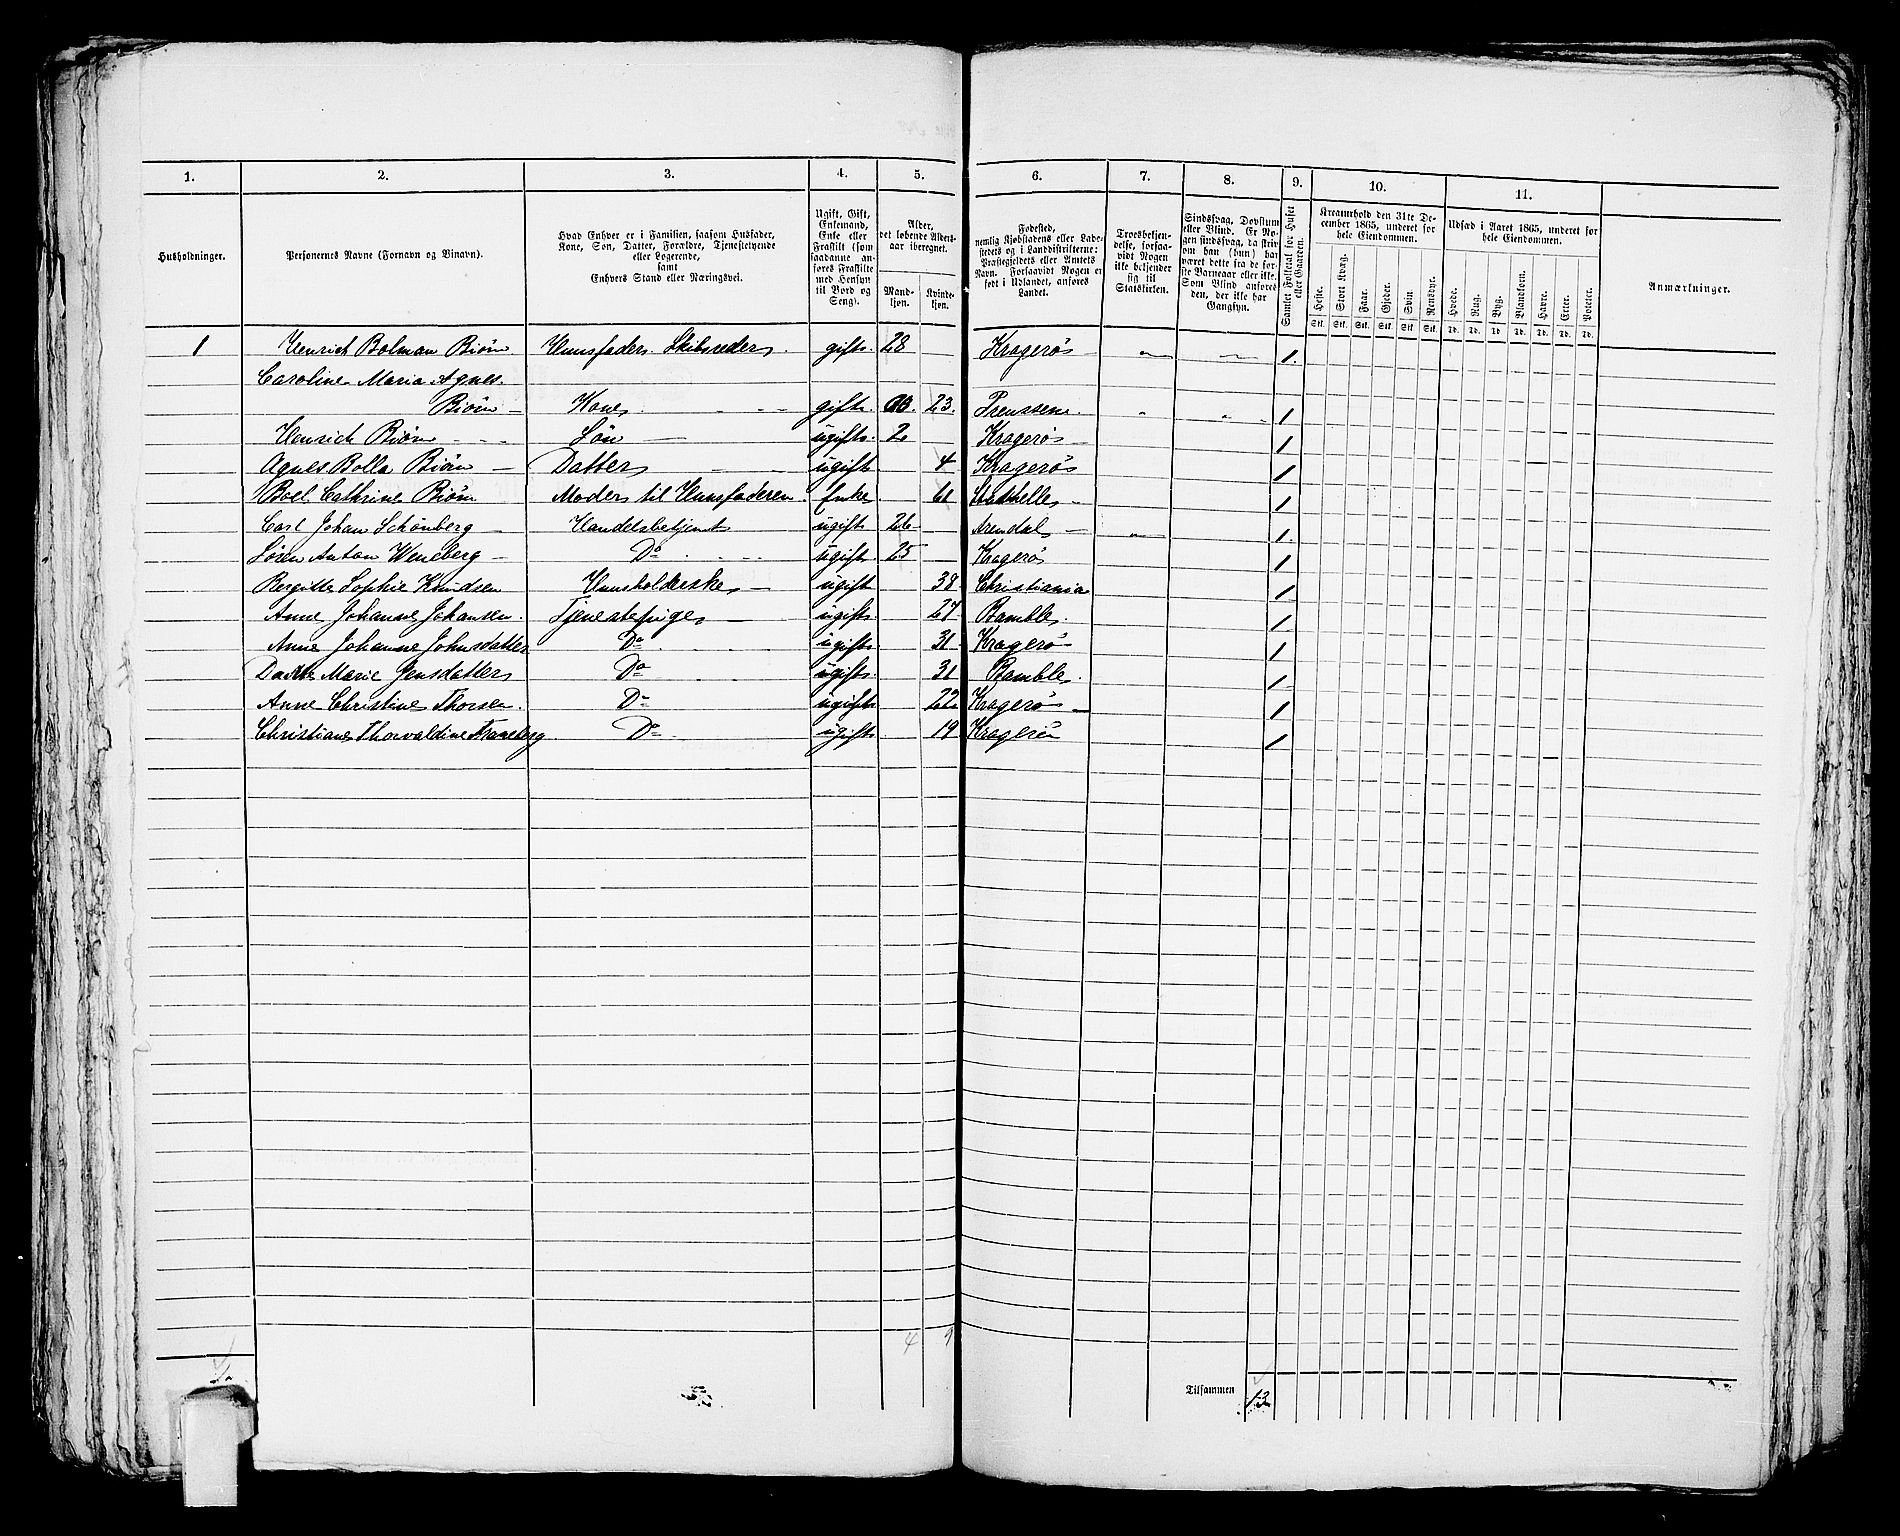 1. 2. 3. 4. 5. 6. 7. 8. 9. 10. 11.
Husholdninger.
Personernes Navne (Fornavn og Binavn).
Hvad Enhver er i Familien, saasom Husfader,
Kone, Søn, Datter, Forældre, Tjenestetyende
eller Logerende,
samt
Enhvers Stand eller Næringsvei.
Ugift, Gift,
Enkemand,
Enke eller
Fraskilt (som
saadanne an-
føres Fraskilte
med Hensyn
til Bord og
Seng).
Alder,
det løbende Alders-
aar iberegnet.
Mand-
kjøn.
Kvinde-
kjøn.
Fødested,
nemlig Kjøbstadens eller Lade-
stedets og i Landdistrikterne:
Præstegjeldets eller Amtets
Navn. Forsaavidt Nogen er
født i Udlandet, anføres
Landet.
Troesbekjen-
delse, forsaa-
vidt Nogen
ikke bekjender
sig til
Statskirken.
Sindssvag, Døvstum
eller Blind. Er No-
gen sindssvag, da skriv
om han (hun) har
været dette fra de før-
ste Barneaar eller ikke.
Som Blind anføres
den, der ikke har
Gangsyn.
Samlet Folketal for Huset
eller Gaarden.
Kreaturhold den 31te De-
cember 1865, underet for
hele Eiendommen.
Heste. Stort Kvæg. Faar. Gjeder. Svin. Rensdyr.
Stk. Stk. Stk. Stk. Stk. Stk.
Udsæd i Aaret 1865, underet for
hele Eiendommen.
Hvede. Rug. Byg. Blandkorn. Havre. Erter. Poteter.
Td. Td. Td. Td. Td. Td. Td.
Anmærkninger.
1 Henrich Bolman Biørn Huusfader. Skibsreder. gift. 28 Kragerø 1.
Caroline Maria Agnes.
Biørn Kone. gift. 23. Preussen. 1
Henrich Biørn Søn ugift. 2 Kragerø 1
Agnes Bolla Biørn Datter ugift 4 Kragerø 1
Boel Cathrine Biørn Moder til Huusfaderen. Enke 61 Stathelle 1
Carl Johan Schönberg Handelsbetjent ugift 26 Arendal 1.
Søren Anton Weneberg Do ugift. 25 Kragerø 1
Bergitte Sophie Knudsen Huusholderske ugift 38 Christiania 1
Anne Johanne Johansen. Tjenestepige ugift. 27 Bamble. 1
Anne Johanne Johnsdatter Do ugift 31 Kragerø 1
Marie Jensdatter Do ugift. 31 Bamble. 1
Anne Christine Thorsen. Do ugift 22 Kragerø 1
Christiane Thorvaldine Do ugift 19 Kragerø 1
4 9
Tilsammen 13